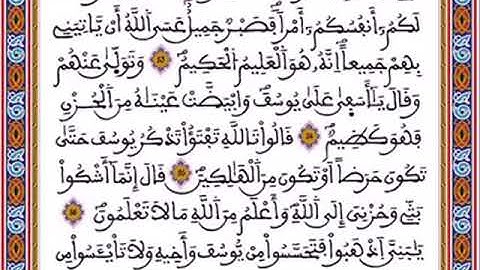 لَكُمُۥٓ أَنفُسُكُمُۥٓ أَمْراٗۖ فَصَبْرٞ جَمِيلٌۖ عَسَى اَ۬للَّهُ أَنْ يَّاتِيَنِے
بِهِمْ جَمِيعاًۖ اِنَّهُۥ هُوَ اَ۬لْعَلِيمُ اُ۬لْحَكِيمُۖ 83 وَتَوَلّ۪يٰ عَنْهُمْ
وَقَالَ يَٰٓأَسَف۪يٰ عَلَيٰ يُوسُفَۖ وَابْيَضَّتْ عَيْنَٰهُ مِنَ اَ۬لْحُزْنِ
فَهُوَ كَظِيمٞۖ 84 قَالُواْ تَاللَّهِ تَفْتَؤُاْ تَذْكُرُ يُوسُفَ حَتَّيٰ
تَكُونَ حَرَضاً اَوْ تَكُونَ مِنَ اَ۬لْهَٰلِكِينَۖ 85 قَالَ إِنَّمَآ أَشْكُواْ
بَثِّے وَحُزْنِيَ إِلَى اَ۬للَّهِۖ وَأَعْلَمُ مِنَ اَ۬للَّهِ مَا لَا تَعْلَمُونَۖ 86
يَٰبَنِيَّ اَ۪ذْهَبُواْ فَتَحَسَّسُواْ مِنْ يُّوسُفَ وَأَخِيهِ وَلَا تَاْيْـَٔسُواْ مِن